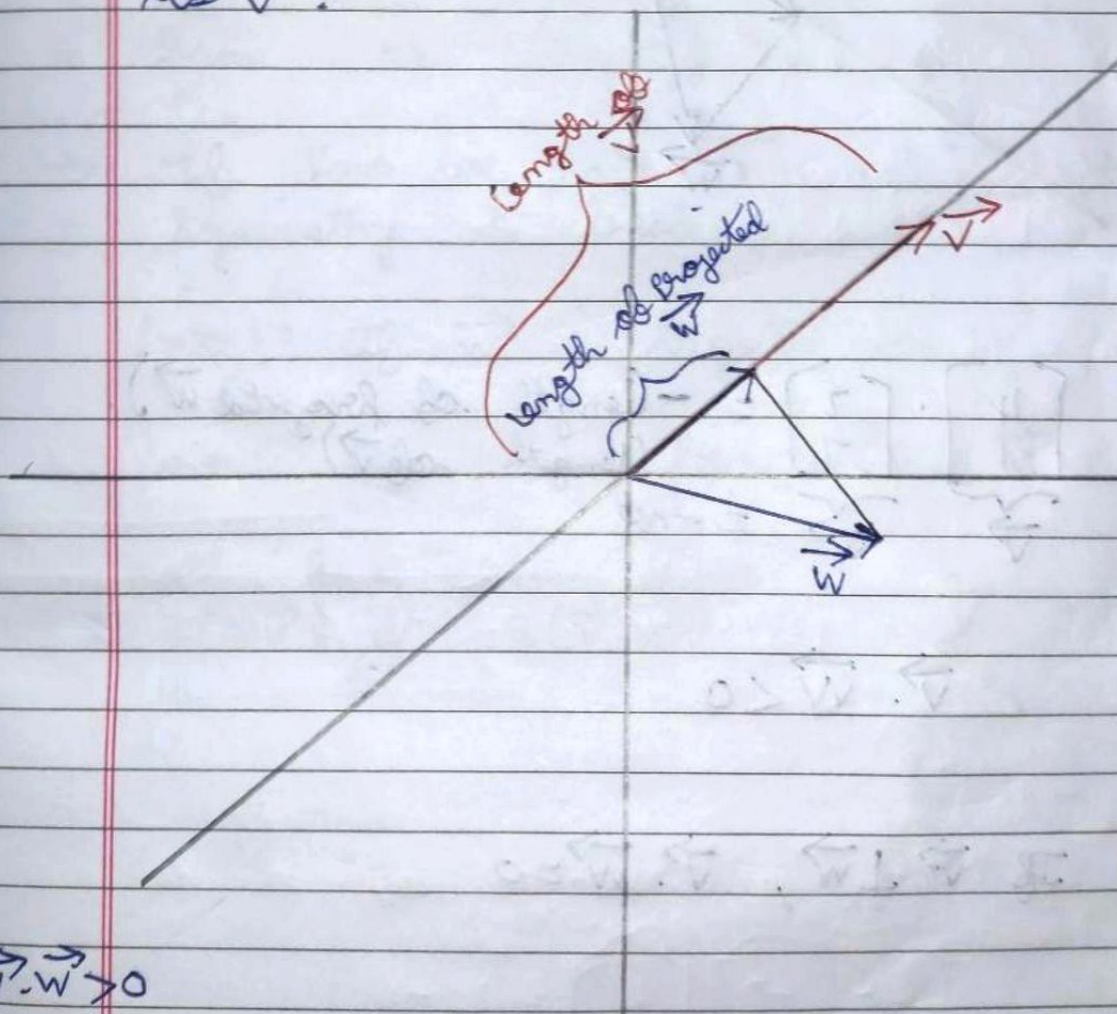 Length of
V
Length of Projected
W
V
W
.W > 0